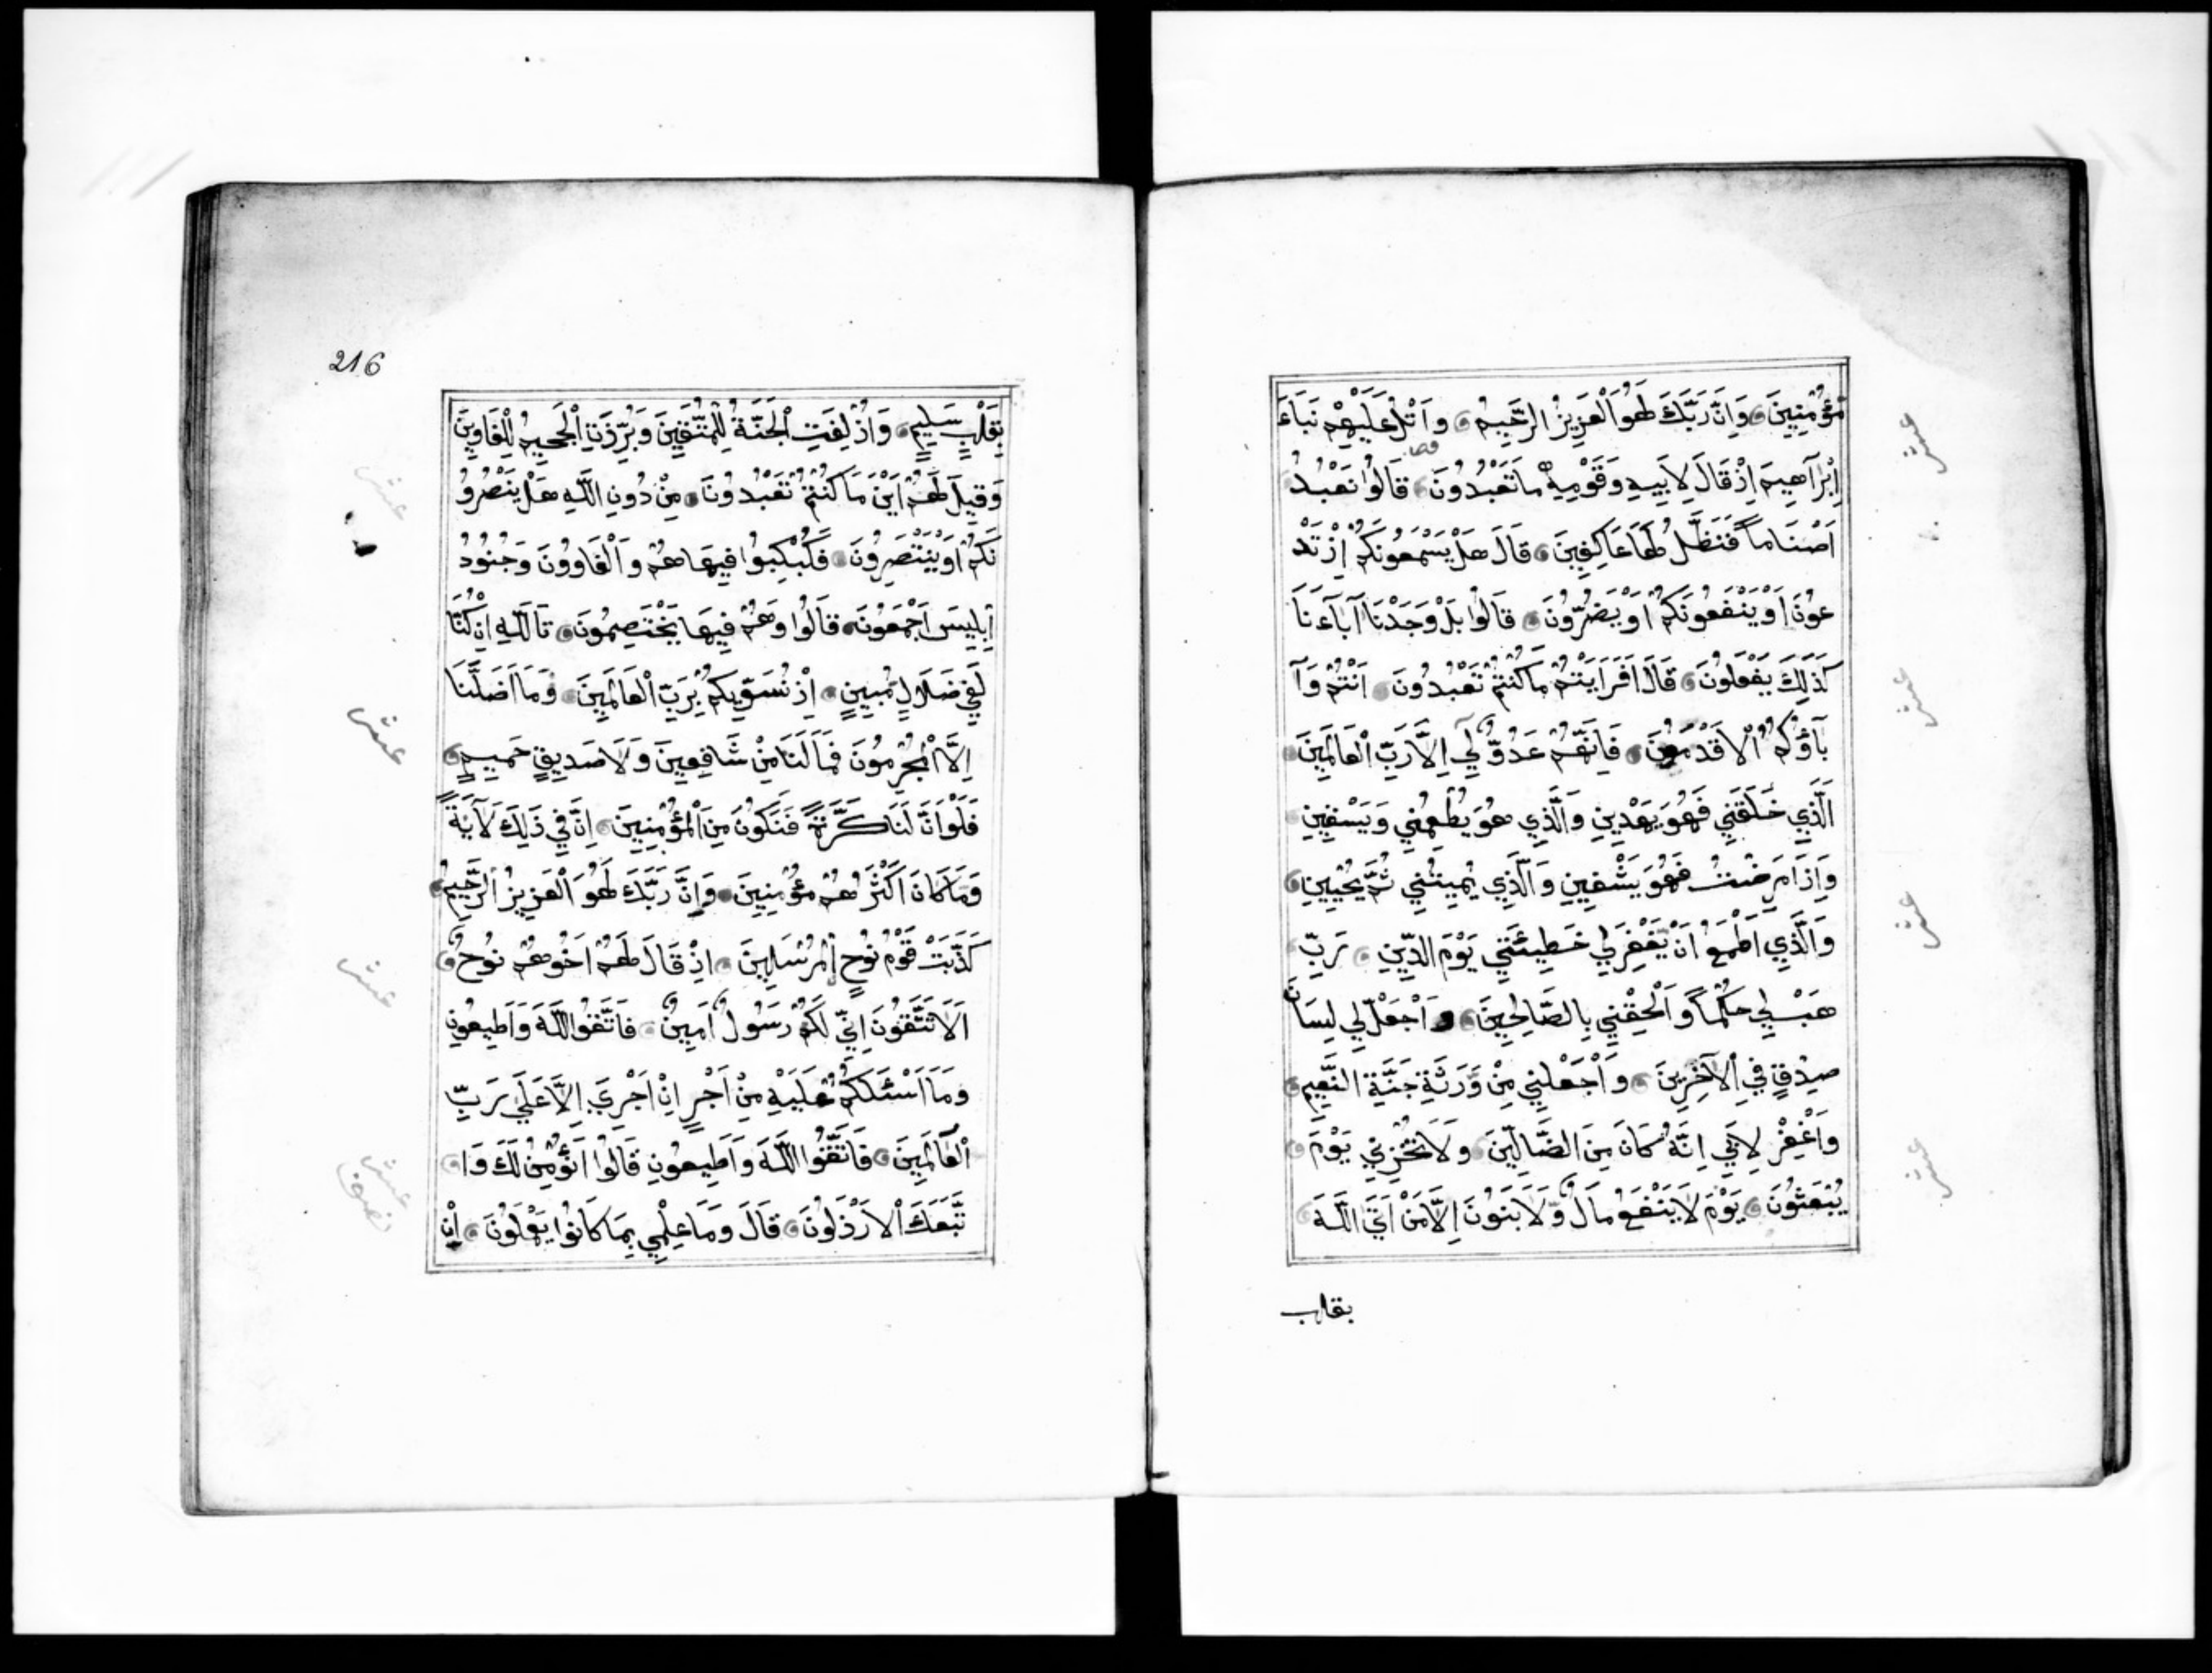 مُؤْمِنِينَ وَاِنَّ رَبَّكَ لَهُوَ الْعَزِيزُ الرَّحِيمُ وَاتْلُ عَلَيْهِمْ نَبَاءَ
اِبْرَاهِيمَ اِذْ قَالَ لِاَبِيهِ وَقَوْمِهِ مَا تَعْبُدُونَ قَالُوا نَعْبُدُ
اَصْنَامًا فَنَظَلُّ لَهَا عَاكِفِينَ قَالَ هَلْ يَسْمَعُونَكُمْ اِذْ تَدْ
عُونَ اَوْ يَنْفَعُونَكُمْ اَوْ يَضُرُّونَ قَالُوا بَلْ وَجَدْنَا آبَاءَنَا
كَذَلِكَ يَفْعَلُونَ قَالَ اَفَرَاَيْتُمْ مَا كُنْتُمْ تَعْبُدُونَ اَنْتُمْ وَآ
بَاؤُكُمُ الْاَقْدَمُونَ فَاِنَّهُمْ عَدُوٌّ لِي اِلَّا رَبَّ الْعَالَمِينَ
الَّذِي خَلَقَنِي فَهُوَ يَهْدِينِ وَالَّذِي هُوَ يُطْعِمُنِي وَيَسْقِينِ
وَاِذَا مَرِضْتُ فَهُوَ يَشْفِينِ وَالَّذِي يُمِيتُنِي ثُمَّ يُحْيِينِ
وَالَّذِي اَطْمَعُ اَنْ يَغْفِرَ لِي خَطِيئَتِي يَوْمَ الدِّينِ رَبِّ
هَبْ لِي حُكْمًا وَاَلْحِقْنِي بِالصَّالِحِينَ وَاجْعَلْ لِي لِسَانَ
صِدْقٍ فِي الْآخِرِينَ وَاجْعَلْنِي مِنْ وَرَثَةِ جَنَّةِ النَّعِيمِ
وَاغْفِرْ لِاَبِي اِنَّهُ كَانَ مِنَ الضَّالِّينَ وَلَا تُخْزِنِي يَوْمَ
يُبْعَثُونَ يَوْمَ لَا يَنْفَعُ مَالٌ وَلَا بَنُونَ اِلَّا مَنْ اَتَى اللَّهَ
بقلب
عشر
عشر
عشر
عشر
216
بِقَلْبٍ سَلِيمٍ وَاُزْلِفَتِ الْجَنَّةُ لِلْمُتَّقِينَ وَبُرِّزَتِ الْجَحِيمُ لِلْغَاوِينَ
وَقِيلَ لَهُمْ اَيْنَ مَا كُنْتُمْ تَعْبُدُونَ مِنْ دُونِ اللَّهِ هَلْ يَنْصُرُو
نَكُمْ اَوْ يَنْتَصِرُونَ فَكُبْكِبُوا فِيهَا هُمْ وَالْغَاوُونَ وَجُنُودُ
اِبْلِيسَ اَجْمَعُونَ قَالُوا وَهُمْ فِيهَا يَخْتَصِمُونَ تَاللَّهِ اِنْ كُنَّا
لَفِي ضَلَالٍ مُبِينٍ اِذْ نُسَوِّيكُمْ بِرَبِّ الْعَالَمِينَ وَمَا اَضَلَّنَا
اِلَّا الْمُجْرِمُونَ فَمَا لَنَا مِنْ شَافِعِينَ وَلَا صَدِيقٍ حَمِيمٍ
فَلَوْ اَنَّ لَنَا كَرَّةً فَنَكُونَ مِنَ الْمُؤْمِنِينَ اِنَّ فِي ذَلِكَ لَآيَةً
وَمَا كَانَ اَكْثَرُهُمْ مُؤْمِنِينَ وَاِنَّ رَبَّكَ لَهُوَ الْعَزِيزُ الرَّحِيمُ
كَذَّبَتْ قَوْمُ نُوحٍ الْمُرْسَلِينَ اِذْ قَالَ لَهُمْ اَخُوهُمْ نُوحٌ
اَلَا تَتَّقُونَ اِنِّي لَكُمْ رَسُولٌ اَمِينٌ فَاتَّقُوا اللَّهَ وَاَطِيعُونِ
وَمَا اَسْئَلُكُمْ عَلَيْهِ مِنْ اَجْرٍ اِنْ اَجْرِيَ اِلَّا عَلَى رَبِّ
الْعَالَمِينَ فَاتَّقُوا اللَّهَ وَاَطِيعُونِ قَالُوا اَنُؤْمِنُ لَكَ وَا
تَّبَعَكَ الْاَرْذَلُونَ قَالَ وَمَا عِلْمِي بِمَا كَانُوا يَعْمَلُونَ اِنْ
عشر
عشر
عشر
عشر
نصف